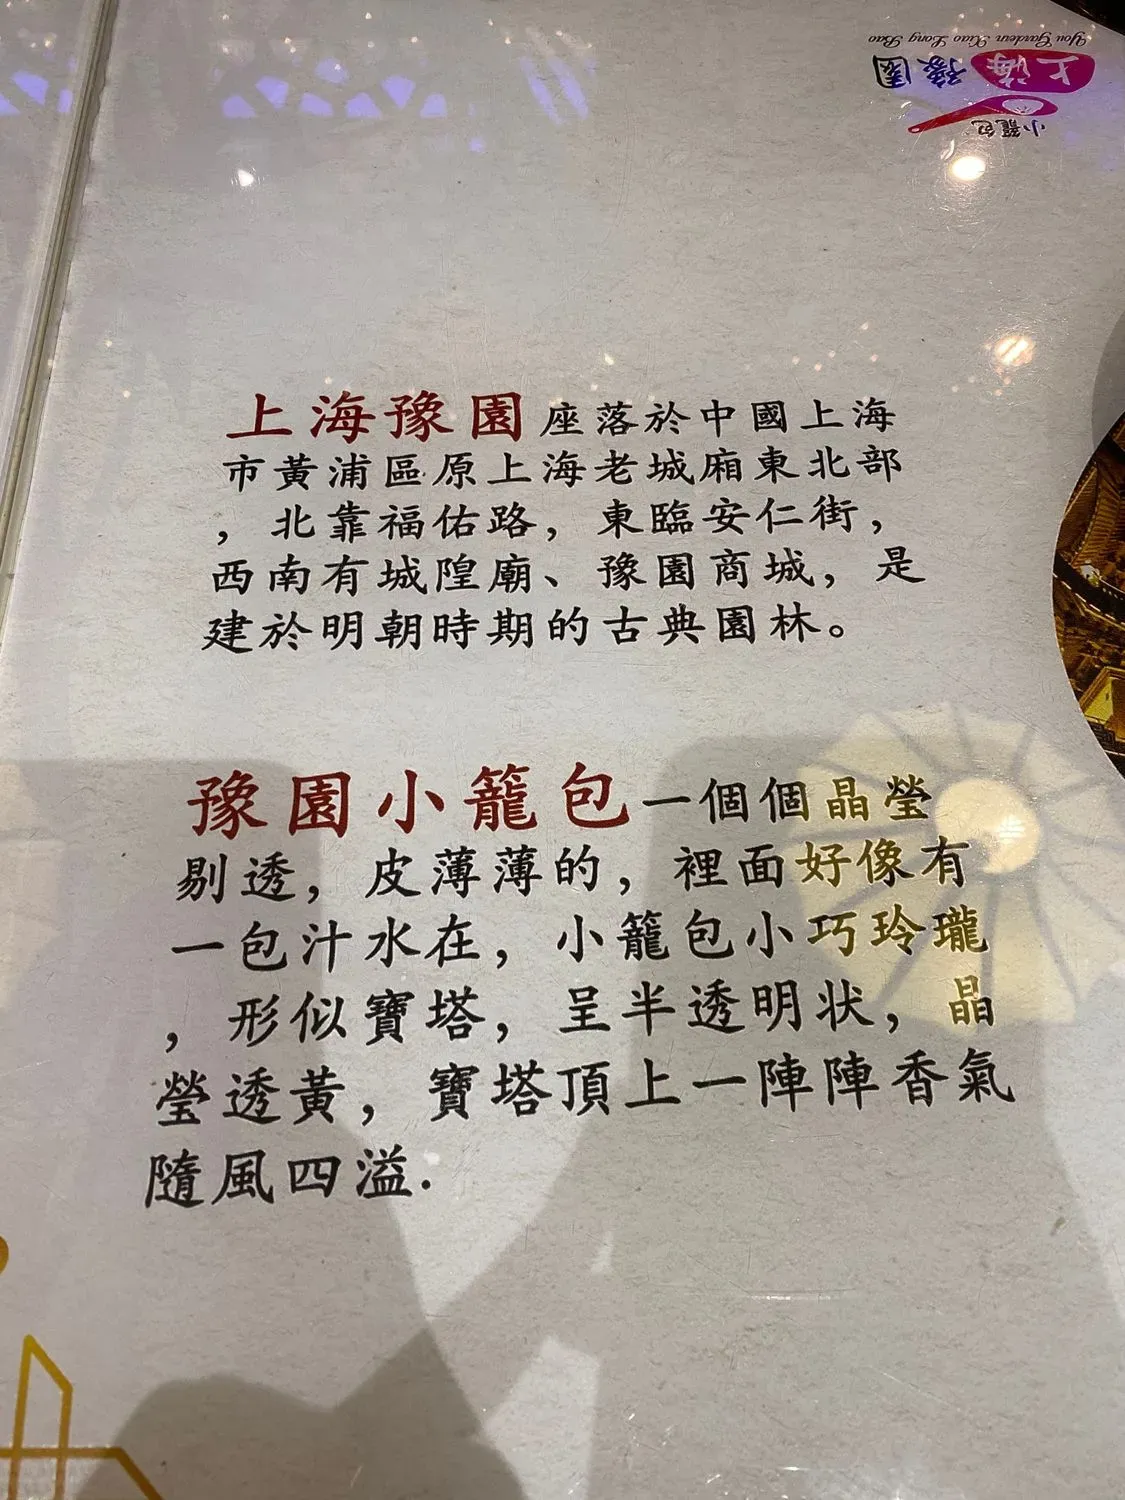 You Garden Xiao Long Bao
上海豫園
小籠包
上海豫園座落於中國上海
市黃浦區原上海老城廂東北部
，北靠福佑路，東臨安仁街，
西南有城隍廟、豫園商城，是
建於明朝時期的古典園林。
豫園小籠包一個個晶瑩
剔透，皮薄薄的，裡面好像有
一包汁水在，小籠包小巧玲瓏
，形似寶塔，呈半透明状，晶
瑩透黃，寶塔頂上一陣陣香氣
隨風四溢.